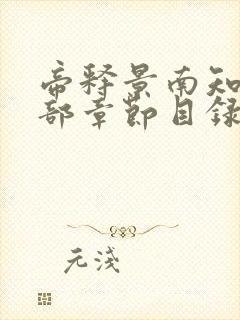 帝释景南知
部章節目録
元淺